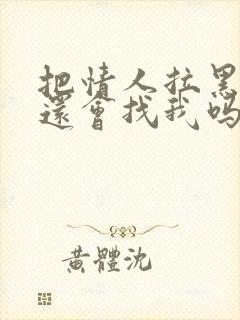 把情人拉黑
還會找我吗
黃體沈